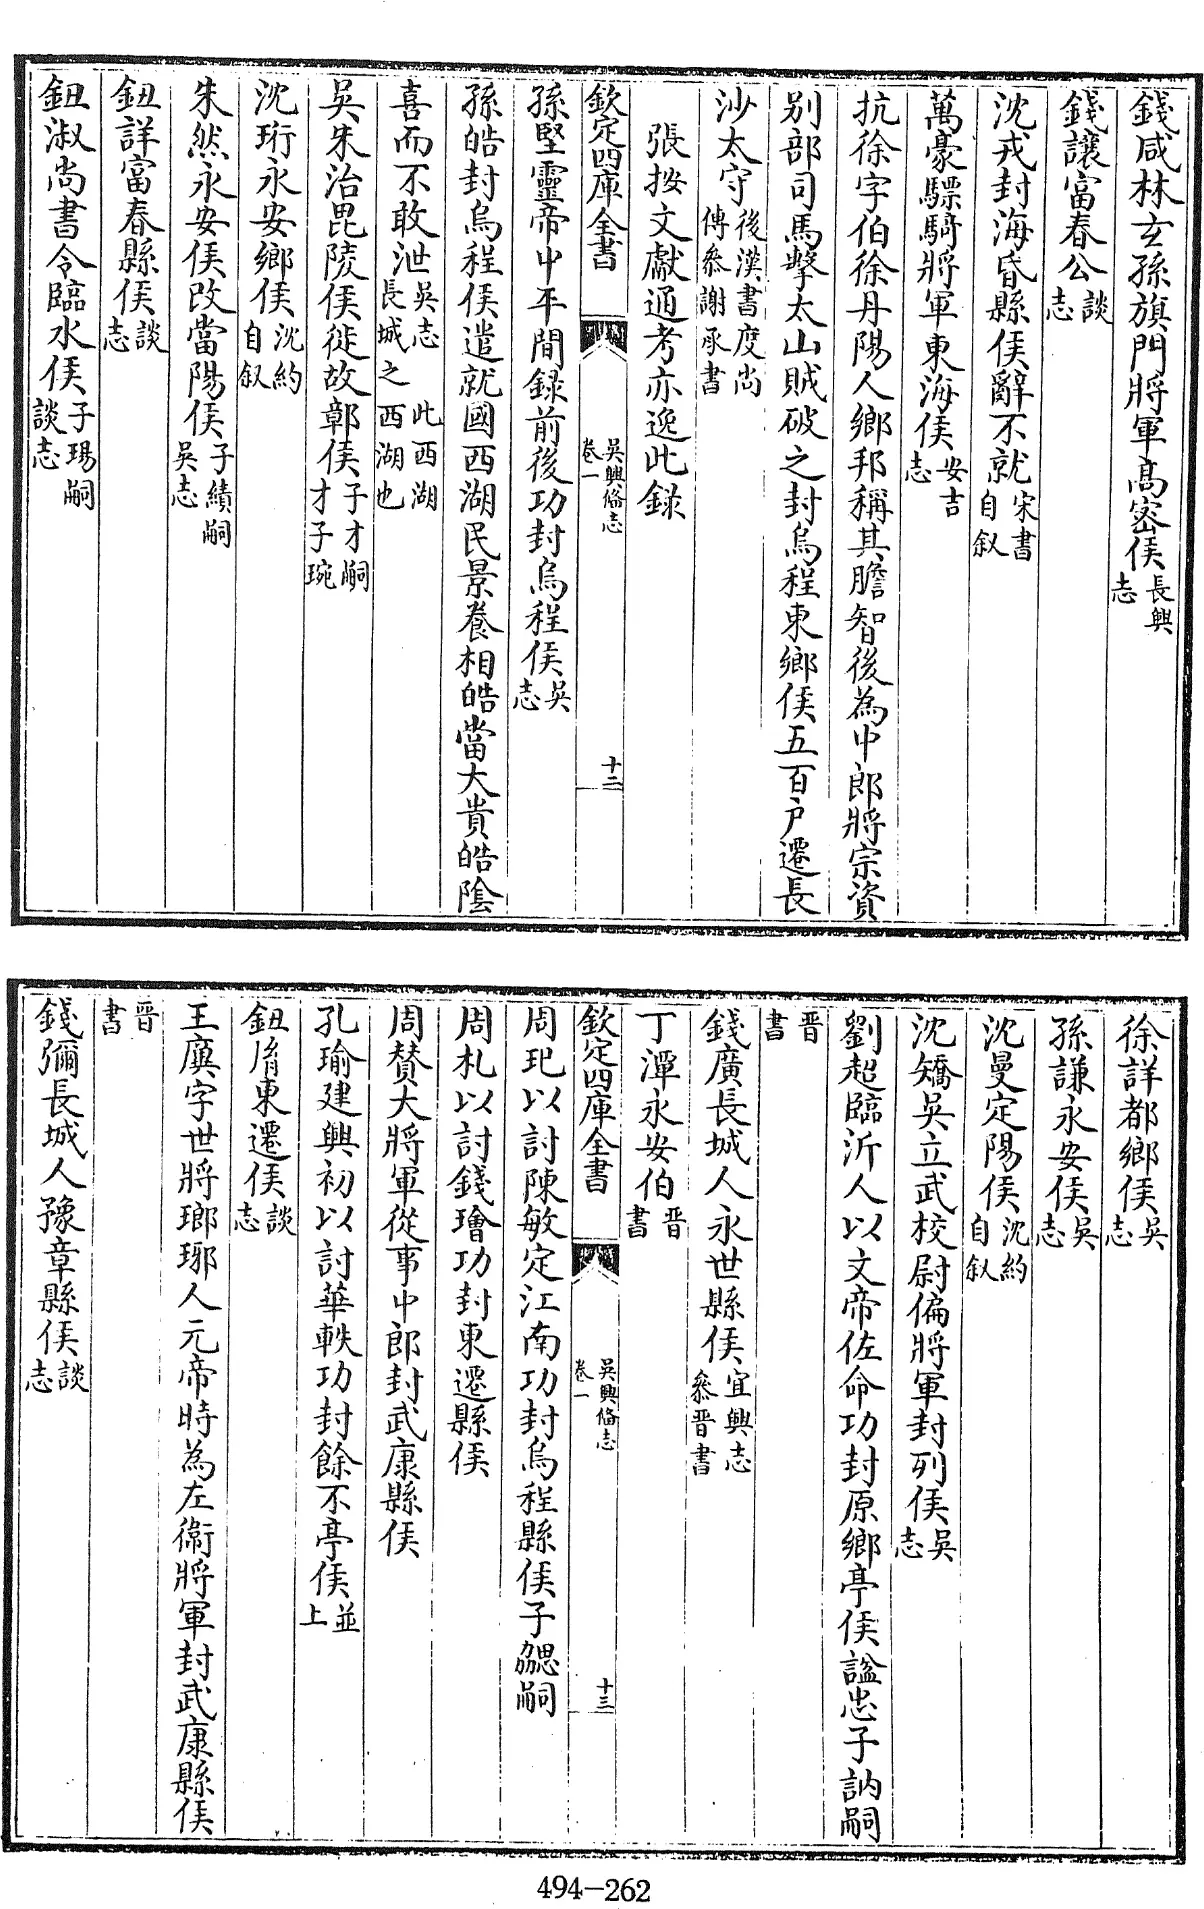 錢咸林玄孫旗門將軍髙密侯長興志
錢讓富春公談志
沈戎封海昏縣侯辭不就宋書自叙
萬豪驃騎將軍東海侯安吉志
抗徐字伯徐丹陽人鄉邦稱其膽智後為中郎將宗資
别部司馬擊太山賊破之封烏程東鄉侯五百户遷長
沙太守後漢書度尚傳叅謝承書
張按文獻通考亦逸此録
欽定四庫全書
吳興備志
卷一
十二
孫堅靈帝中平間録前後功封烏程侯吳志
孫皓封烏程侯遣就國西湖民景養相皓當大貴皓陰
喜而不敢泄吳志 此西湖長城之西湖也
吳朱治毘陵侯徙故鄣侯子才嗣才子琬
沈珩永安鄉侯沈約自叙
朱然永安侯改當陽侯子績嗣吳志
鈕詳富春縣侯談志
鈕淑尚書令臨水侯子瑒嗣談志
徐詳都鄉侯吳志
孫謙永安侯吳志
沈曼定陽侯沈約自叙
沈矯吳立武校尉偏將軍封列侯吳志
劉超臨沂人以文帝佐命功封原鄉亭侯諡忠子訥嗣
晋書
錢廣長城人永世縣侯宜興志叅晋書
丁潭永安伯晋書
欽定四庫全書
吳興備志
卷一
十三
周玘以討陳敏定江南功封烏程縣侯子勰嗣
周札以討錢璯功封東遷縣侯
周賛大將軍從事中郎封武康縣侯
孔瑜建興初以討華軼功封餘不亭侯並上
鈕滑東遷侯談志
王廙字世將瑯琊人元帝時為左衛將軍封武康縣侯
晋書
錢彌長城人豫章縣侯談志
494-262